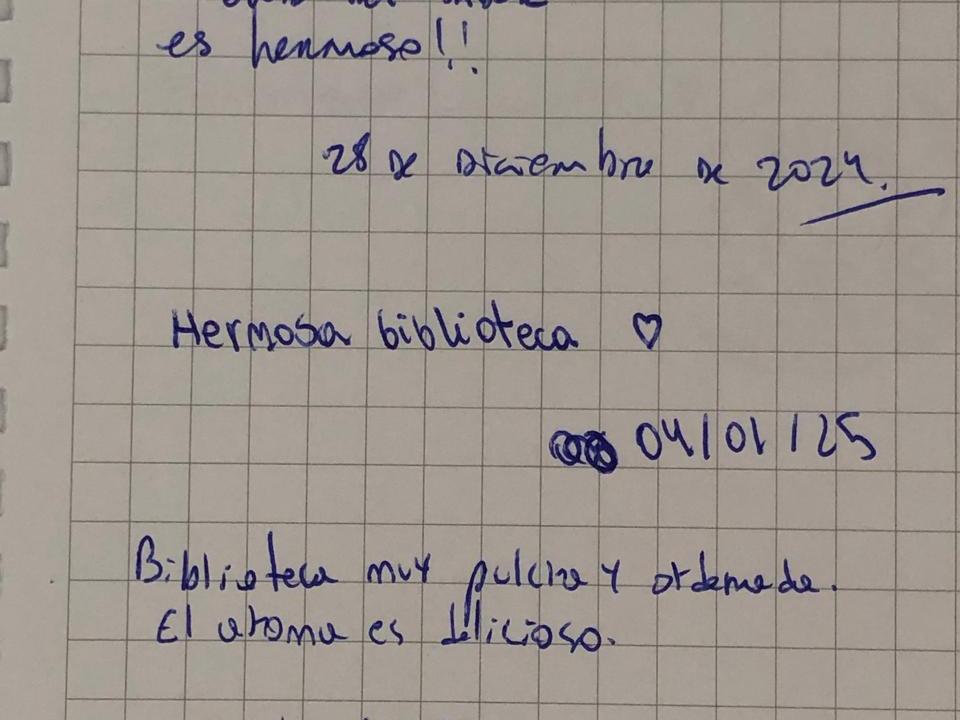 es hermoso!!
28 de Diciembre de 2024.
Hermosa biblioteca ♡
04/01/25
Biblioteca muy pulcra y ordenada.
El aroma es delicioso.